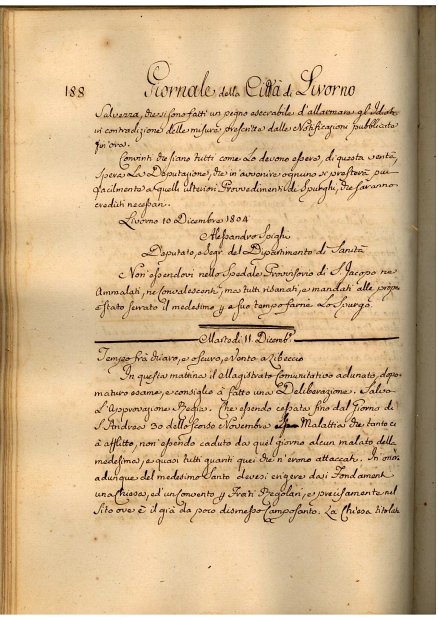 188 Giornale della Città di Livorno
Salvezza, che si sono fatti un pegno esecrabile d'allarmare gl'Idioti
in contradizione delle misure prescritte dalle Notificazioni pubblicate
fin'ora.
Convinti che siano tutti come Lo devono essere, di questa verità,
spera La Deputazione, che in avvenire ognuno si presterà più
facilmente a quelli ulteriori Provvedimenti, de Spurghi, che saranno
creduti necessari.
Livorno 10 Dicembre 1804
Alessandro Spighi
Deputato, e Segr. del Dipartimento di Sanità
Non essendovi nello Spedale Provvisorio di S. Jacopo ne
Ammalati, ne Convalescenti, ma tutti risanati, e mandati alle proprie
è stato serrato il medesimo p e suo tempo farne Lo Spurgo.
Martedì 11. Dicembre
Tempo frà chiaro, e oscuro, Vento a Libeccio
In questa mattina il Magistrato Comunitativo adunato, dopo
maturo esame, e consiglio à fatto una Deliberazione. Salvo
L'Approvazione Regia. Che essendo cessata fino dal Giorno di
S. Andrea 30 dello scorso Novembre Malattia che tanto ci
à afflitto, non essendo caduto da quel giorno alcun malato della
medesima, e quasi tutti quanti quei che n'erono attaccati. In onore
adunque del medesimo Santo devesi erigere dasi Fondamenti
una Chiesa, ed'un Convento p Frati Regolari, e precisamente nel
Sito ove è il già da poco dismesso Camposanto. La Chiesa titolata